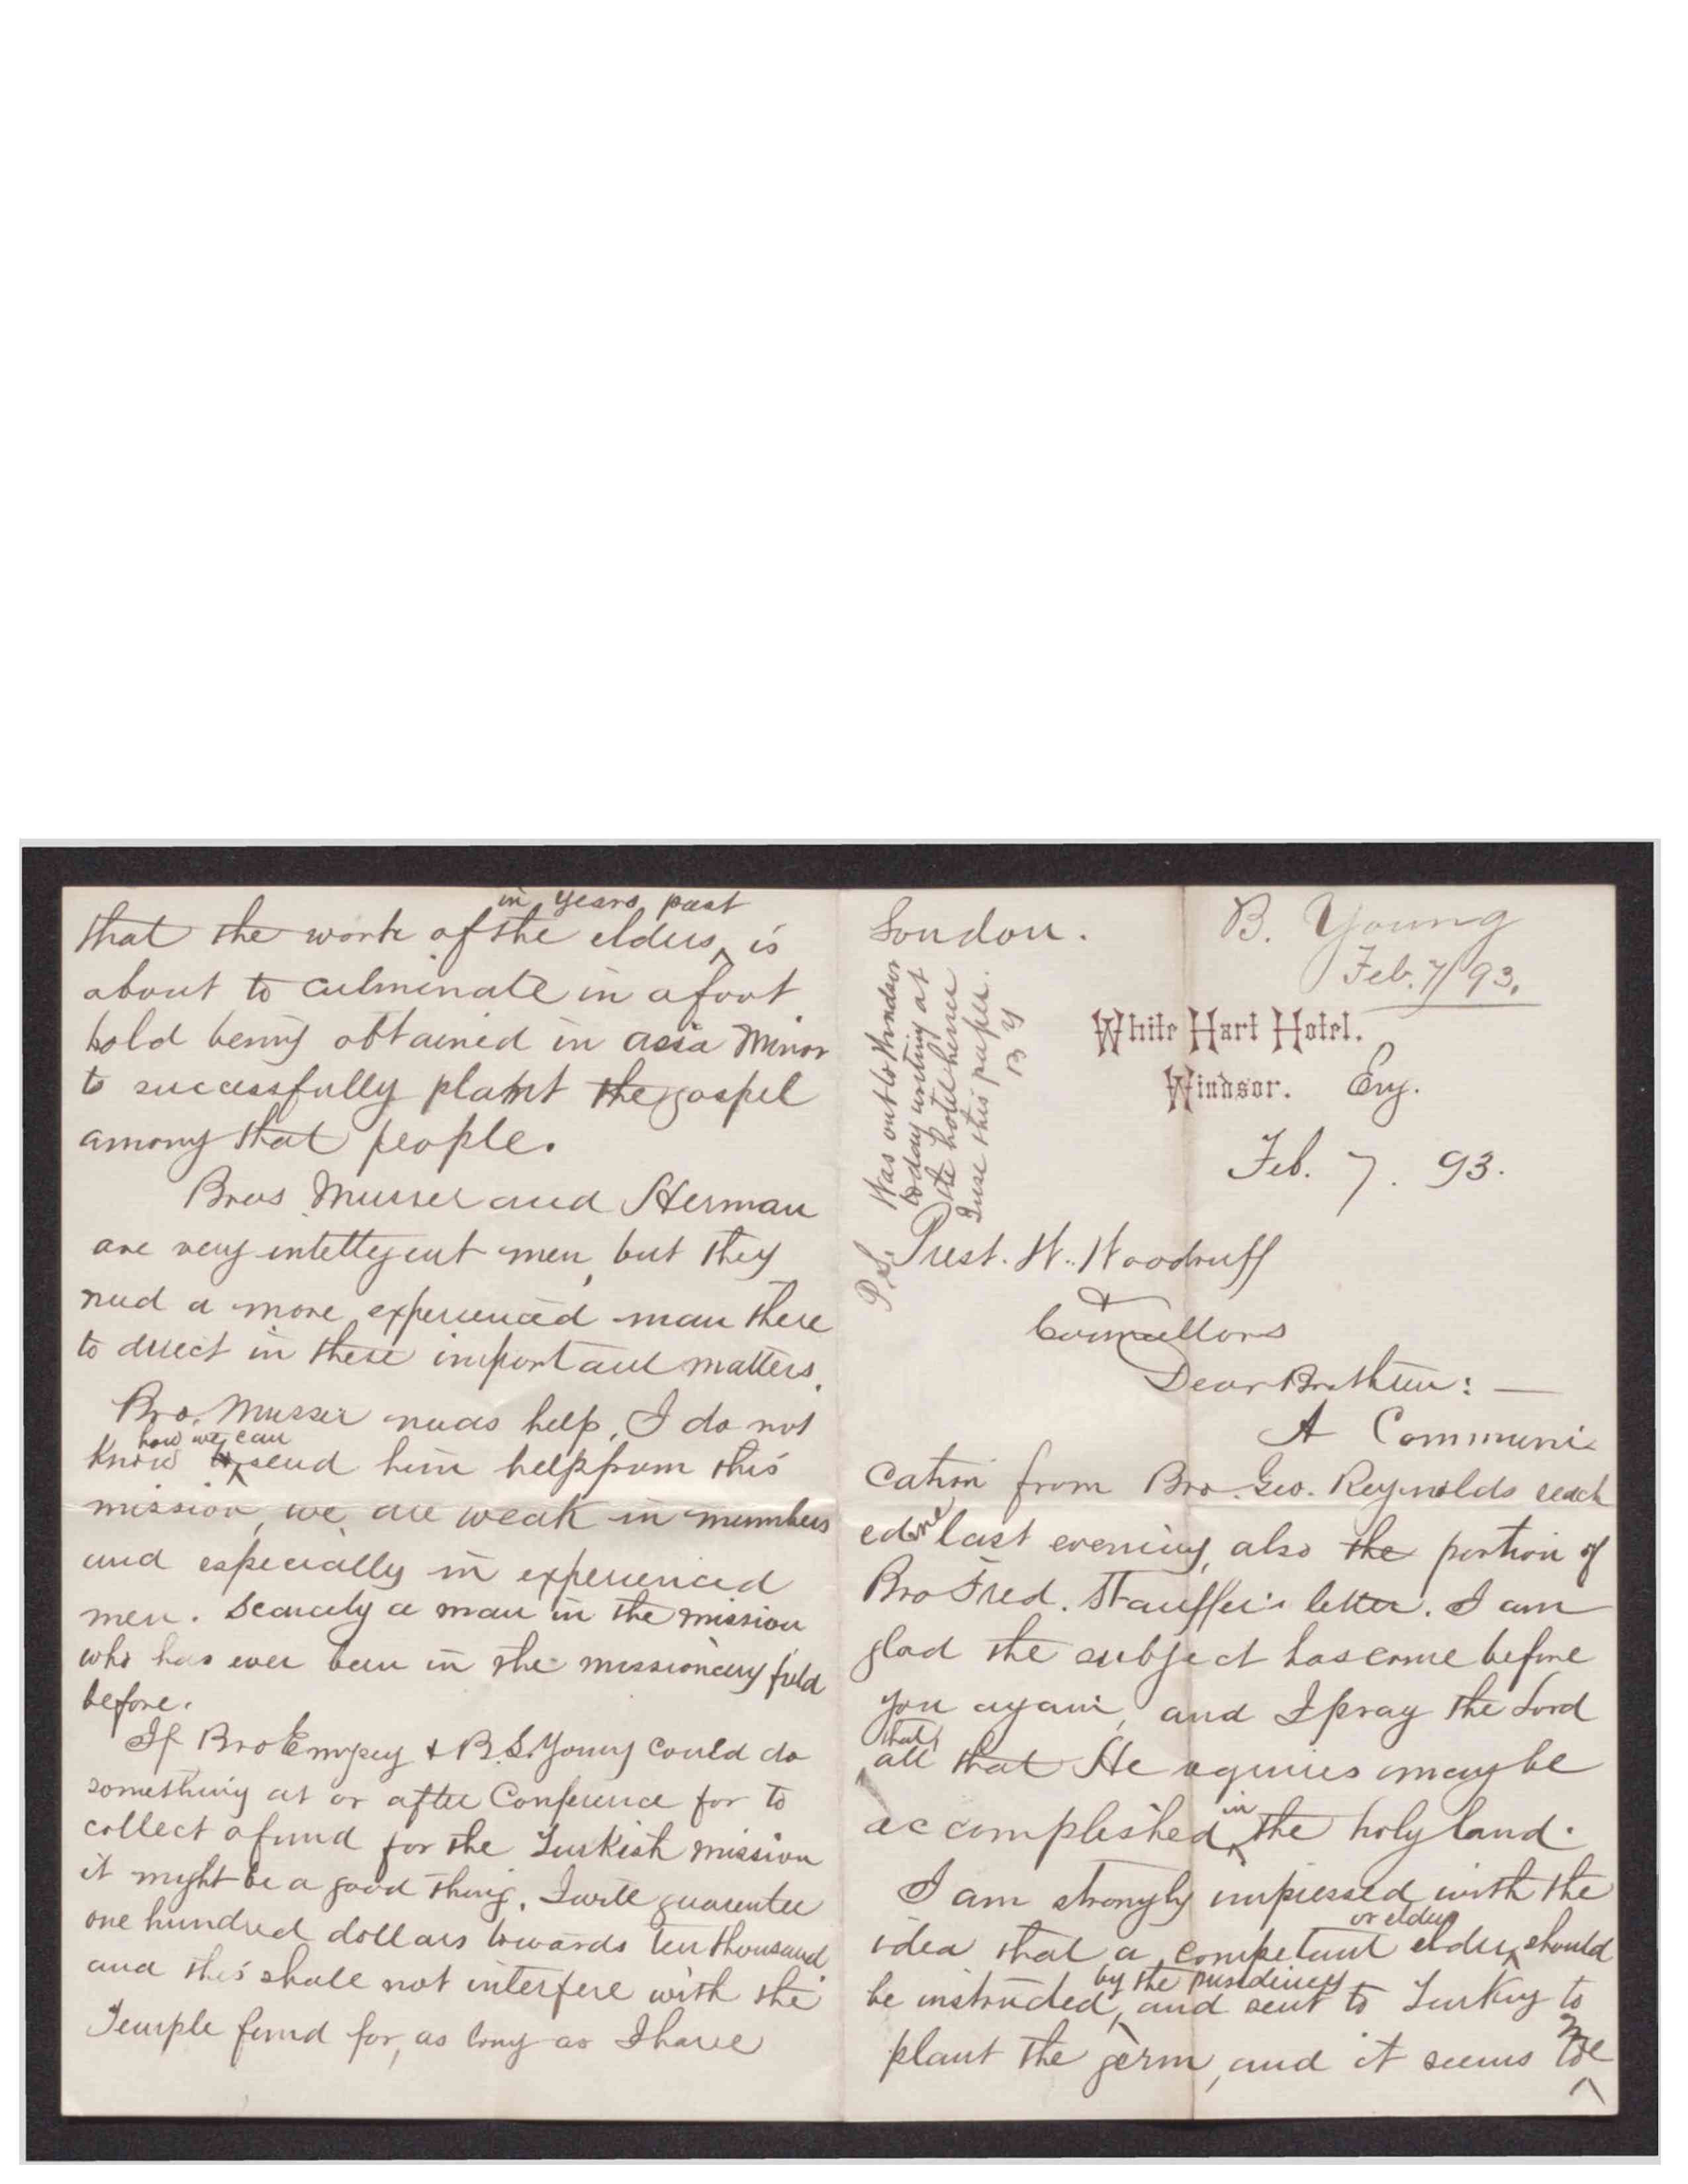 B. Young
Feb. 7/93.
London.
White Hart Hotel.
Windsor. Eng.
Feb. 7. 93.
P.S. Was out to Windsor
today writing at
the hotel hence
I use this paper.
B Y
Prest. W. Woodruff
&
Councellors
Dear Brethren: —
A Communi-
cation from Bro. Geo. Reynolds reach
ed me last evening, also the portion of
Bro Fred. Stauffer's letter. I am
glad the subject has come before
you again, and I pray the Lord
that
all that He requires may be
accomplished in the holy land.
I am strongly impressed with the
idea that a competant elder or elders should
be instructed, by the presidency and sent to Turkey to
plant the germ, and it seems to me
that the work of the elders in years past is
about to culminate in a foot
hold being obtained in asia Minor
to successfully plant the gospel
among that people.
Bros Musser and Herman
are very intelligent men, but they
need a more experienced man there
to direct in these important matters.
Bro. Musser needs help, I do not
know how we can to send him help from this
mission, we are weak in numbers
and especially in experienced
men. Scarcely a man in the mission
who has ever been in the missionary field
before.
If Bro Empey & B.S. Young could do
something at or after Conference for to
collect a fund for the Turkish mission
it might be a good thing. I will guarentee
one hundred dollars towards ten thousand
and this shall not interfere with the
Temple fund for, as long as I have